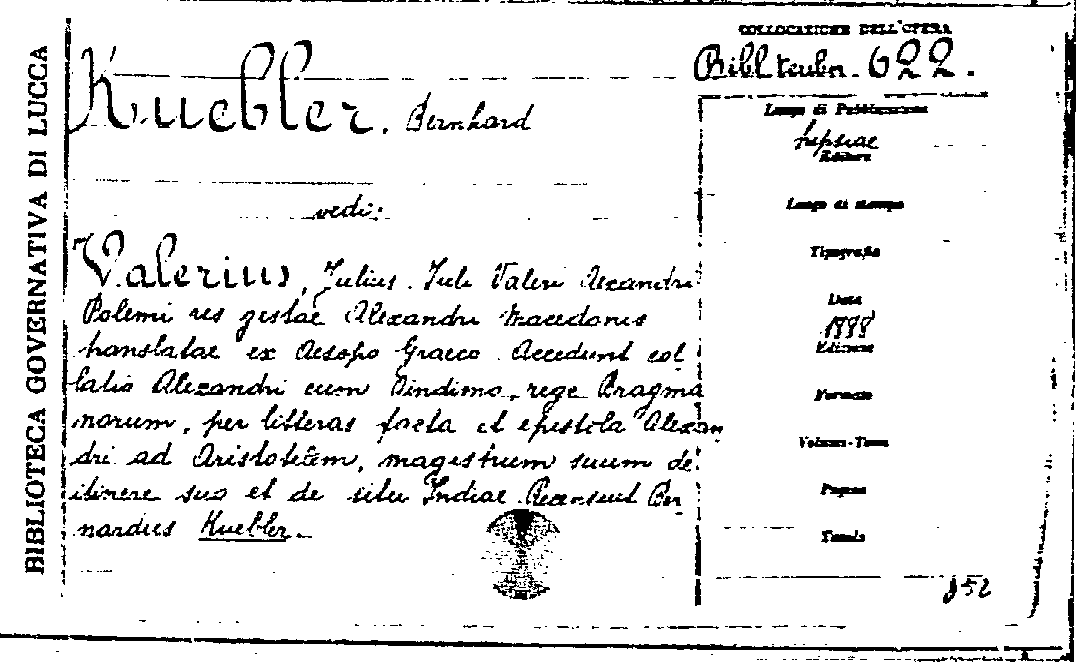 BIBLIOTECA GOVERNATIVA DI LUCCA
Kuebler. Bernhard
vedi:
Valerius, Julius. Juli Valeri Alexandri
Polemi res gestae Alexandri Macedonis
translatae ex Aesopo Graeco. Accedunt col
latio Alexandri cum Dindimo, rege Bragma
norum, per litteras facta et epistola Alexan
dri ad Aristotelem, magistrum suum de
itinere suo et de situ Indiae. Recensuit Ber
nardus Kuebler.
COLLOCAZIONE DELL'OPERA
Bibl. teubn. 622.
Luogo di Pubblicazione
Lipsiae
Editore
Luogo di stampa
Tipografia
Data
1888
Edizione
Formato
Volume-Tomo
Pagine
Tavole
852